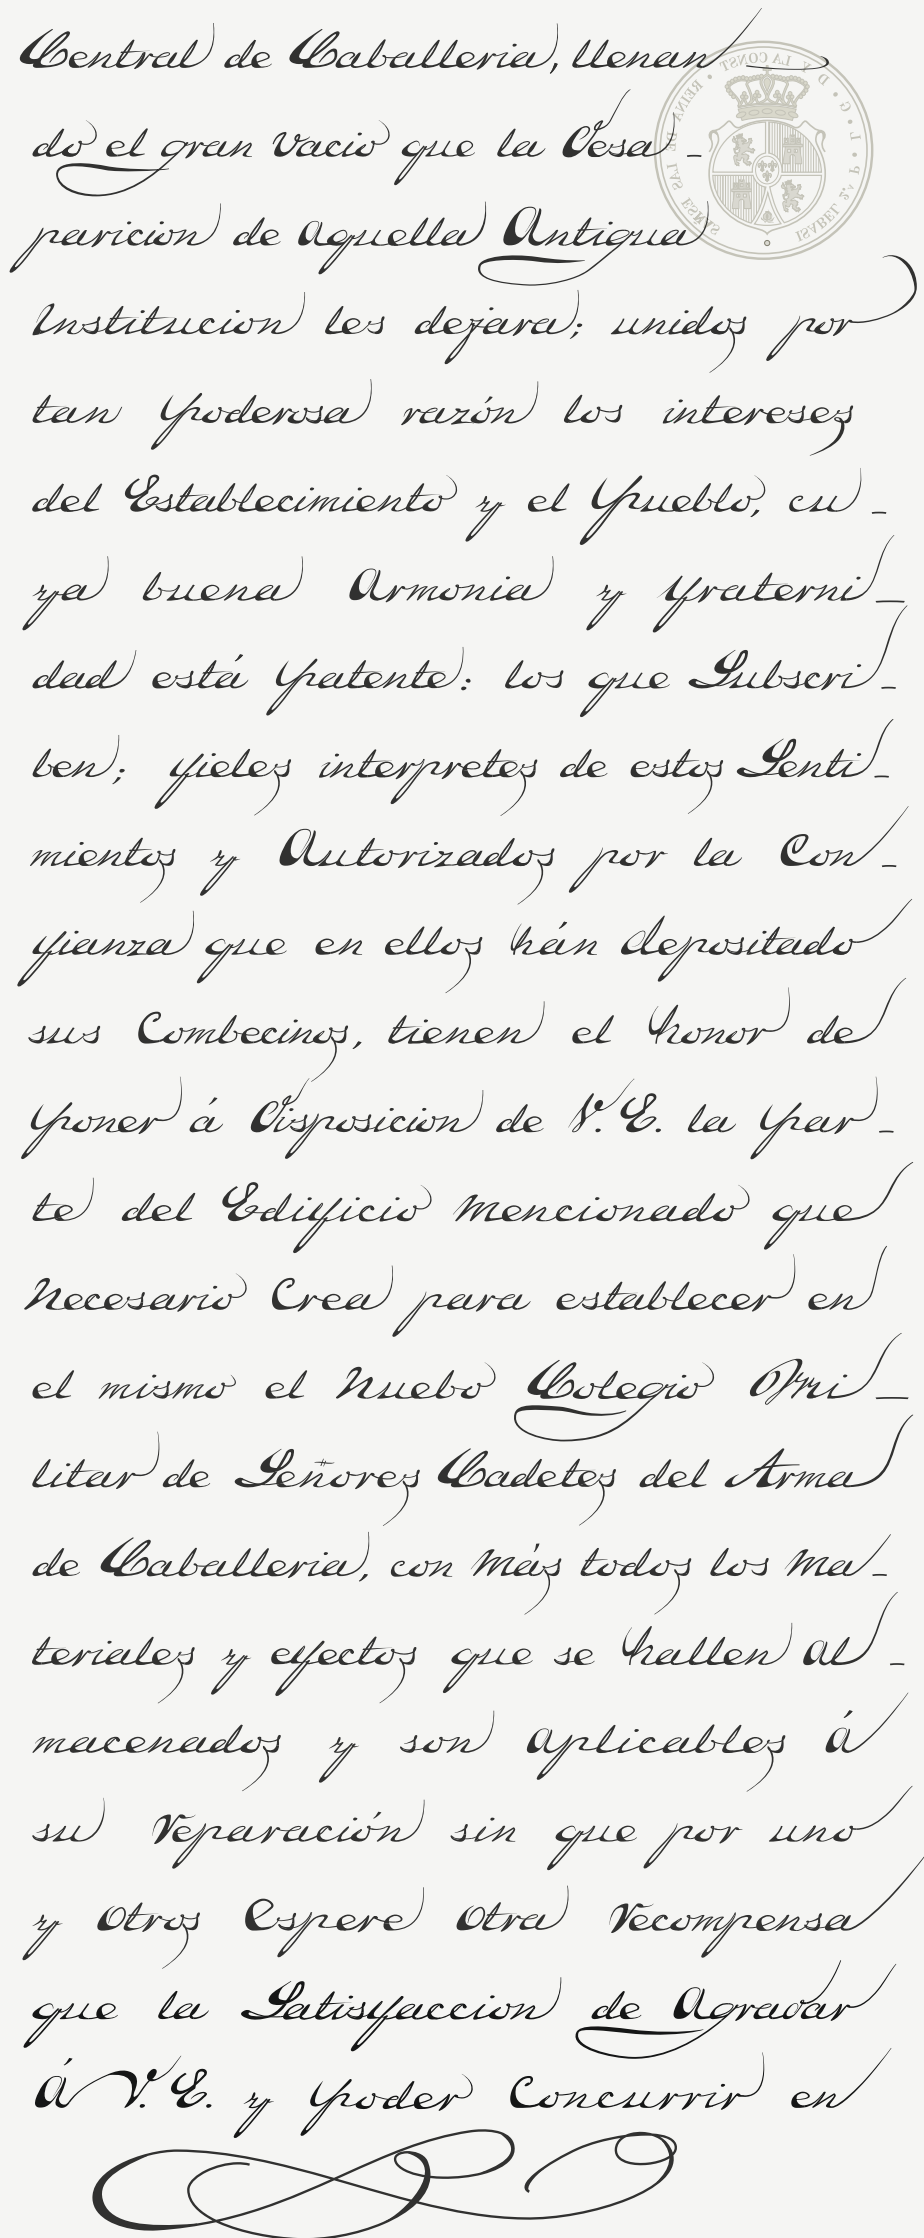 Central de Caballeria, llenan
do el gran vacio que la Desa-
paricion de aquella Antigua
Institucion les dejara; unidos por
tan poderosa razón los intereses
del Establecimiento y el Pueblo, cu-
ya buena Armonia y fraterni-
dad está patente: los que Subscri-
ben; fieles interpretes de estos Senti-
mientos y Autorizados por la Con-
fianza que en ellos hán depositado
sus Combecinos, tienen el honor de
poner á Disposicion de V. E. la par-
te del Edificio mencionado que
Necesario Crea para establecer en
el mismo el Nuebo Colegio Mi-
litar de Señores Cadetes del Arma
de Caballeria, con más todos los ma-
teriales y efectos que se hallen al-
macenados y son aplicables á
su reparación sin que por uno
y otros espere otra recompensa
que la Satisfaccion de Agradar
Á V. E. y poder Concurrir en
ISABEL 2.ª P. L. G. D. Y LA CONST. REINA DE LAS ESPAÑAS